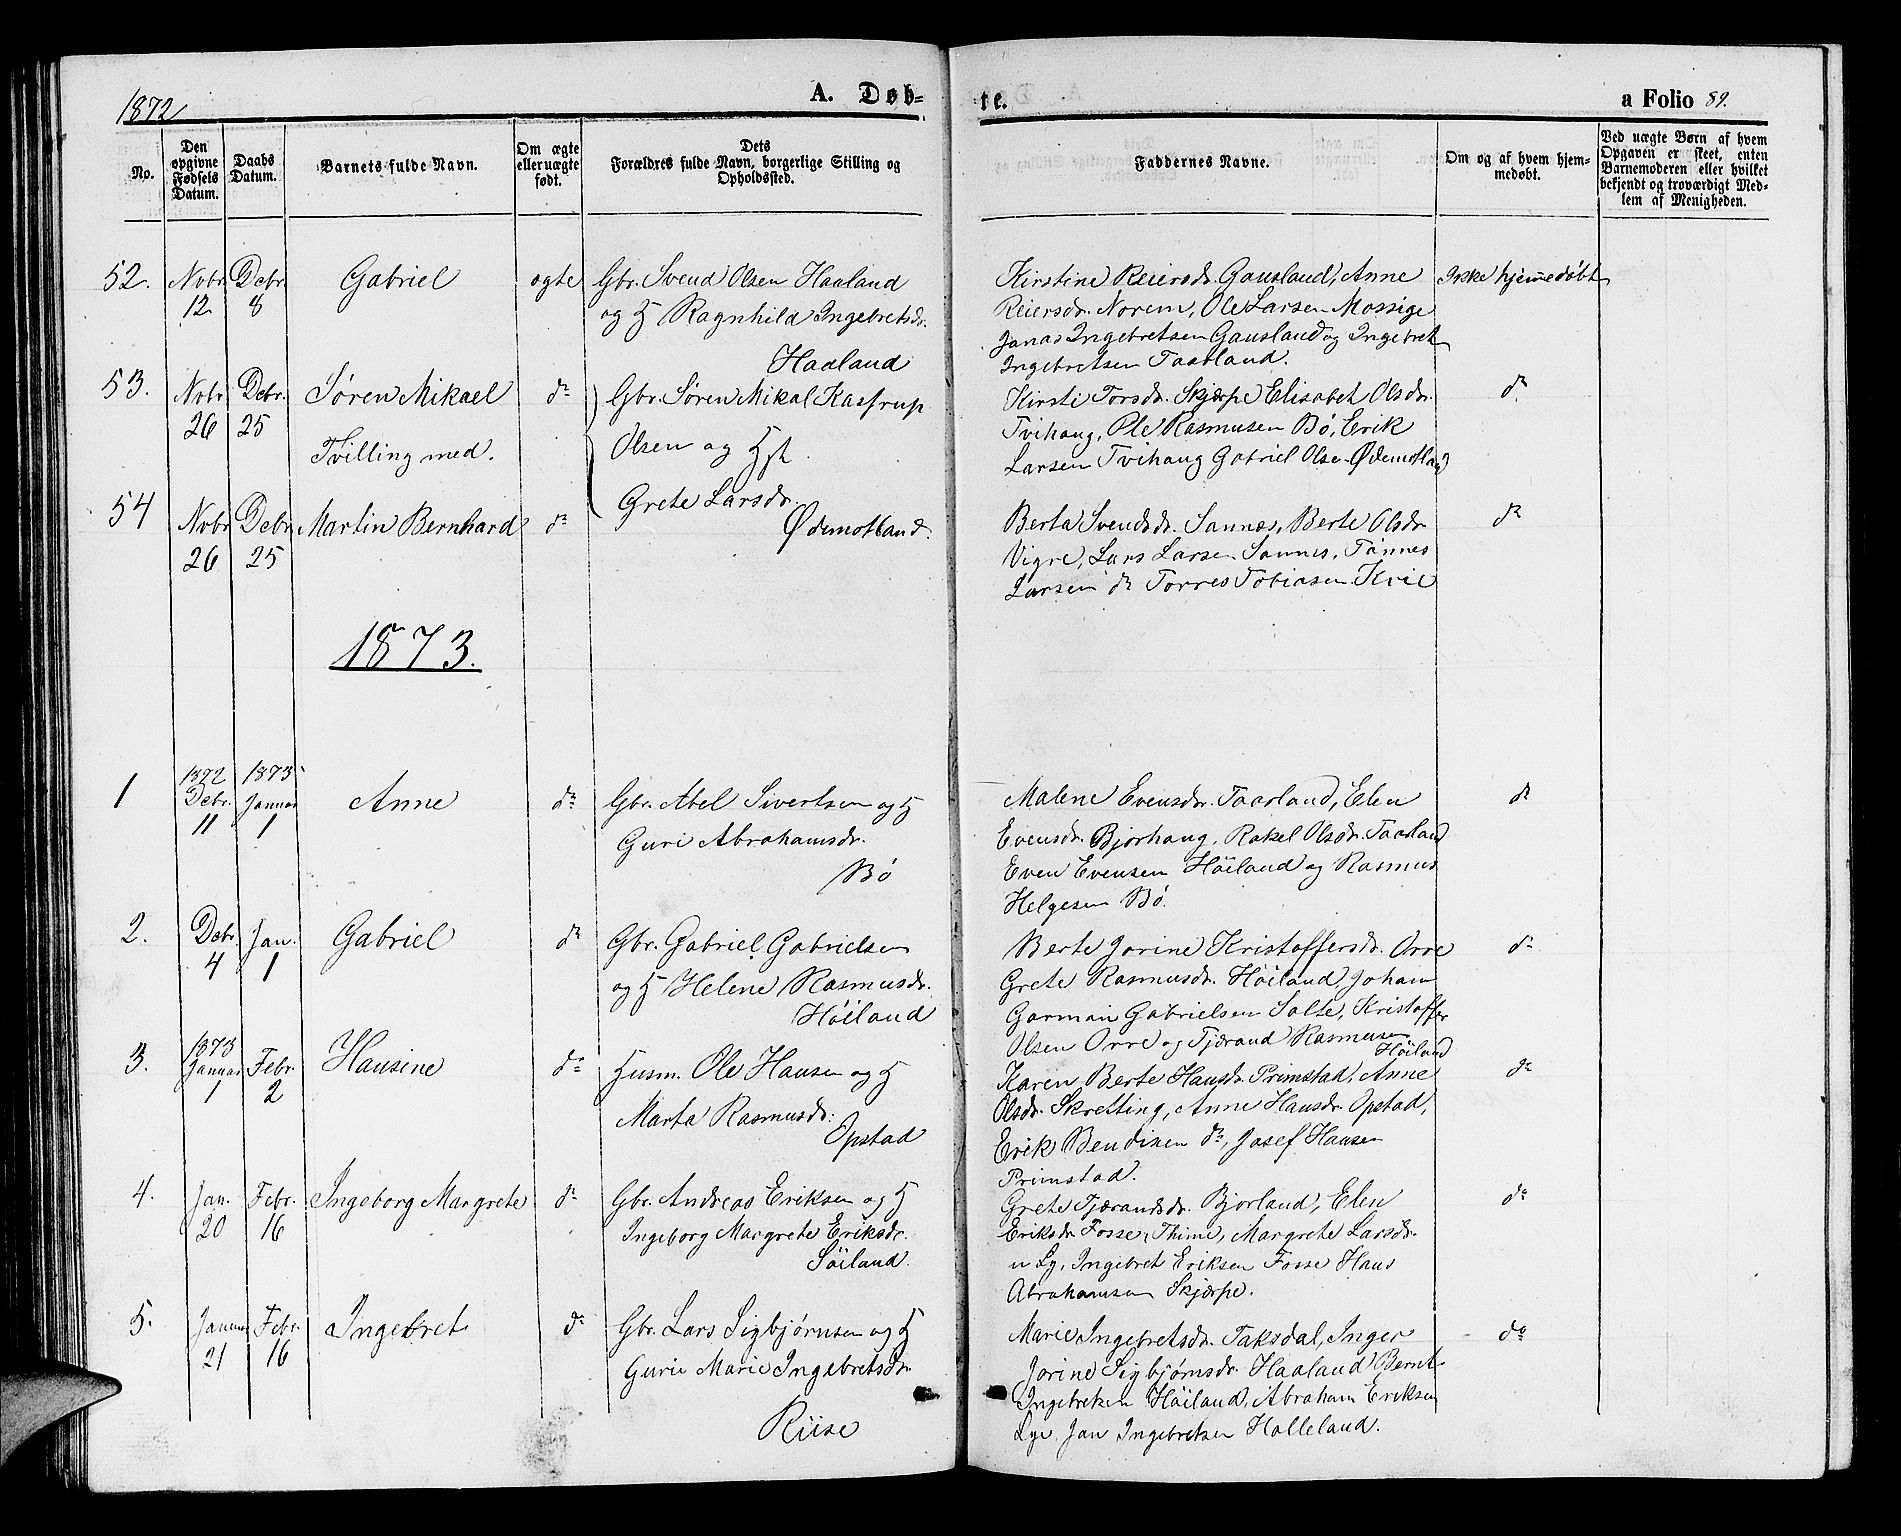 1872
A. Døb-
te.
a Folio 89.
No.
Den opgivne Fødsels Datum.
Daabs Datum.
Barnets fulde Navn.
Om ægte eller uægte født.
Dets Forældres fulde Navn, borgerlige Stilling og Opholdssted.
Faddernes Navne.
Om og af hvem hjemmedøbt.
Ved uægte Børn af hvem Opgaven er skeet, enten Barnemoderen eller hvilket bekjendt og troværdigt Medlem af Menigheden.
52. Novbr. 12 Debr. 8 Gabriel ægte
Gbr. Svend Olsen Haaland
og H Ragnhild Ingebretsdr.
Haaland
Kirstine Reiersdr. Gausland, Anne
Reiersdr. Norem, Ole Larsen Mossige
Jonas Ingebretsen Gausland og Ingebret
Ingebretsen Taarland.
Ikke hjemmedøbt
53. Novbr. 26 Debr. 25 Søren Mikael
Tvilling med.
do
Gbr. Søren Mikal Kastrup
Olsen og Hst
Grete Larsdr.
Ødemotland.
Kirsti Torsdr. Skjærpe Elisabet Olsdr.
Tvihaug, Ole Rasmusen Bø, Erik
Larsen Tvihaug Gabriel Olse Ødemotland
do
54 Novbr. 26 Debr. 25 Martin Bernhard do
Berta Svendsdr. Sannes, Berte Olsdr.
Vigre, Lars Larsen Sannes, Tønnes
Larsen do Torres Tobiasen Kvie
do
1873.
1 1872 Debr. 11 1873 Januar 1 Anne do
Gbr. Abel Sivertsen og H
Guri Abrahamsdr.
Bø
Malene Evensdr. Taarland, Elen
Evensdr. Bjorhaug, Rakel Olsdr. Taarland
Even Evensen Höiland og Rasmus
Helgesen Bø.
do
2. Debr. 4 Jan. 1 Gabriel do
Gbr. Gabriel Gabrielsen
og H Helene Rasmusdr.
Höiland
Berte Jorine Kristoffersdr. Orre
Grete Rasmusdr. Höiland, Johan
Garman Gabrielsen Salte, Kristoffer
Olsen Orre og Tjærand Rasmusen
Höiland
do
3. 1873 Januar 1 Febr. 2 Hansine do
Husm. Ole Hansen og H
Marta Rasmusdr.
Opstad
Karen Berte Hansdr. Primstad, Anne
Olsdr. Skretting, Anne Hansdr. Opstad,
Erik Bendixen do, Josef Hansen
Primstad.
do
4. Jan. 20 Febr. 16 Ingeborg Margrete do
Gbr. Andreas Eriksen og H
Ingeborg Margrete Eriksdr.
Söiland.
Grete Tjærandsdr. Bjorland, Elen
Eriksdr. Fosse, Thime, Margrete Larsdr.
Ly, Ingebret Eriksen Fosse Hans
Abrahamsen Skjærpe.
do
5. Januar 21 Febr. 16 Ingebret do
Gbr. Lars Sigbjørnsen og H
Gurie Marie Ingebretsdr.
Riise
Marie Ingebretsdr. Taksdal, Inger
Jorine Sigbjørnsdr. Haaland Bernt
Ingebretsen Höiland, Abraham Eriksen
Lye, Jan Ingebretsen Holleland.
do